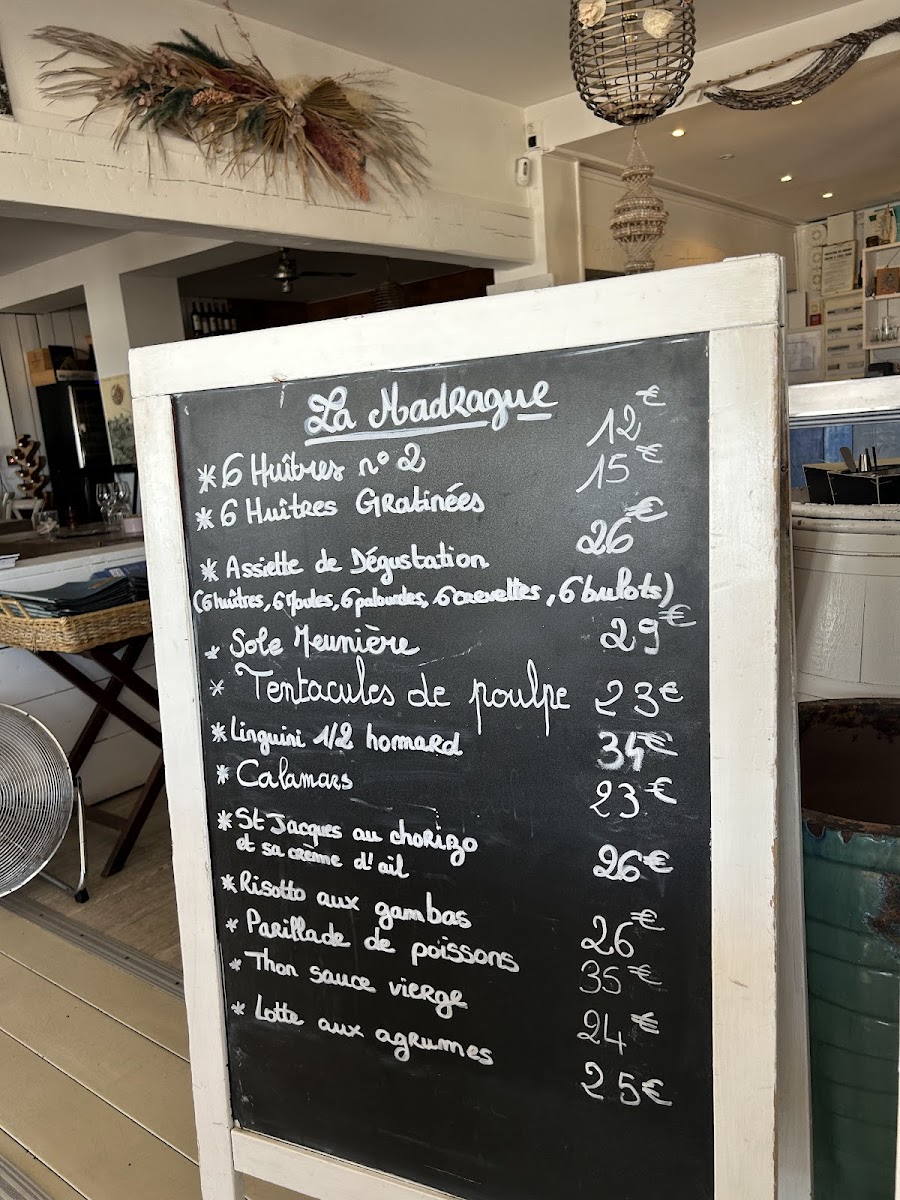 La Madrague
* 6 Huîtres n° 2 12€
* 6 Huîtres Gratinées 15€
* Assiette de Dégustation 26€
(6 huîtres, 6 Moules, 6 palourdes, 6 crevettes, 6 bulots)
* Sole Meunière 29€
* Tentacules de poulpe 23€
* Linguini 1/2 homard 34€
* Calamars 23€
* St Jacques au chorizo
et sa crème d'ail 26€
* Risotto aux gambas 26€
* Parillade de poissons 35€
* Thon sauce vierge 24€
* Lotte aux agrumes 25€